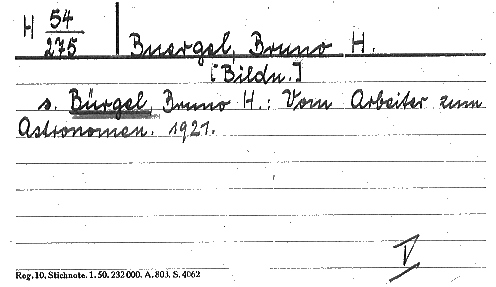 H 54/275 Buergel, Bruno H.
[Bildn.]
s. Bürgel, Bruno H.: Vom Arbeiter zum
Astronomen. 1921.
V
Reg. 10. Stichnote. 1. 50. 232000. A. 803. S. 4062